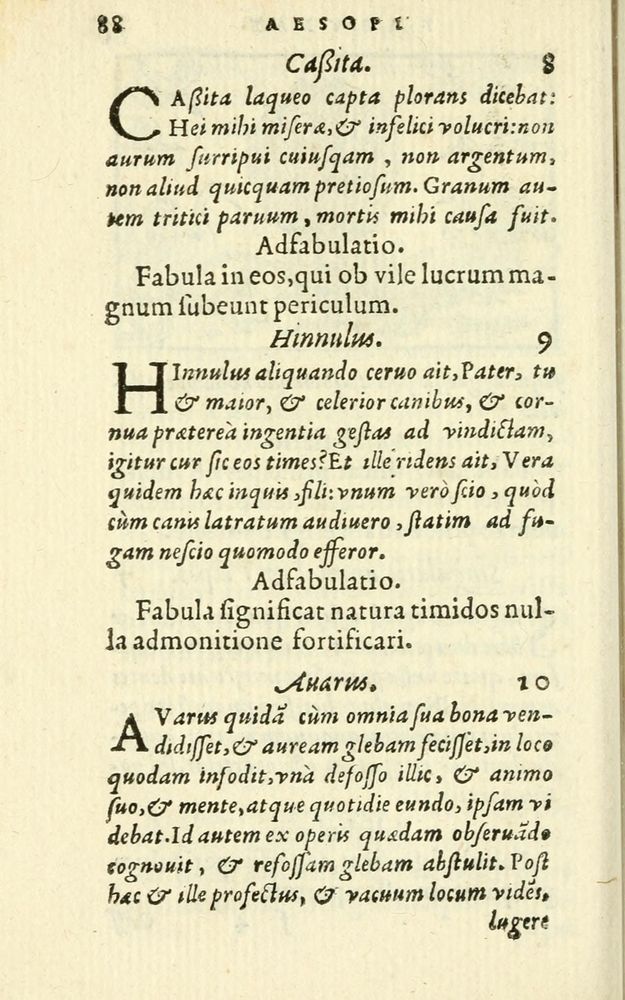 88 AESOPI
Caßita. 8
CAßita laqueo capta plorans dicebat:
Hei mihi miſeræ, & infelici volucri: non
aurum ſurripui cuiuſqam, non argentum,
non aliud quicquam pretioſum. Granum au-
tem tritici paruum, mortis mihi cauſa fuit.
Adfabulatio.
Fabula in eos, qui ob vile lucrum ma-
gnum ſubeunt periculum.
Hinnulus. 9
HInnulus aliquando ceruo ait, Pater, tu
& maior, & celerior canibus, & cor-
nua prætereà ingentia geſtas ad vindictam,
igitur cur ſic eos times? Et ille ridens ait, Vera
quidem hæc inquis, fili: vnum verò ſcio, quòd
cùm canis latratum audiuero, ſtatim ad fu-
gam neſcio quomodo efferor.
Adfabulatio.
Fabula ſignificat natura timidos nul-
la admonitione fortificari.
Auarus. 10
AVarus quidã cùm omnia ſua bona ven-
didiſſet, & auream glebam feciſſet, in loco
quodam infodit, vnà defoſſo illic, & animo
ſuo, & mente, atque quotidie eundo, ipſam vi
debat. Id autem ex operis quædam obſeruãdo
cognouit, & refoſſam glebam abſtulit. Poſt
hæc & ille profectus, & vacuum locum vidẽs,
lugere